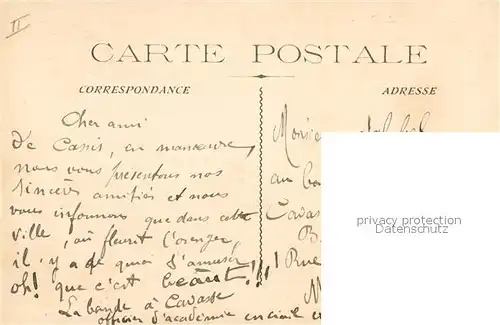 II
CARTE POSTALE
CORRESPONDANCE
ADRESSE
Cher ami
de Cassis, en manœuvre,
nous vous présentons nos
sincères amitiés et nous
vous informons que dans cette
ville, où fleurit l'oranger,
il y a de quoi s'amuser
oh! que c'est beau!!!
La bande à Cavasse
officier d'académie
Monsieur
au
Cavasse
B.
Rue
privacy protection
Datenschutz